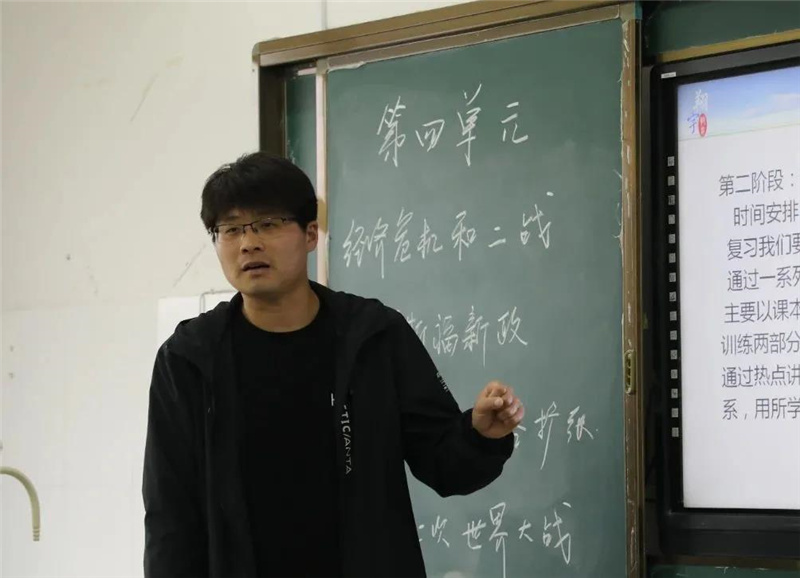 第四单元
经济危机和二战
斯福新政
扩张
次世界大战
TIC/ANTA
翔宇
第二阶段：
时间安排
复习我们要
通过一系列
主要以课本
训练两部分
通过热点讲
系，用所学